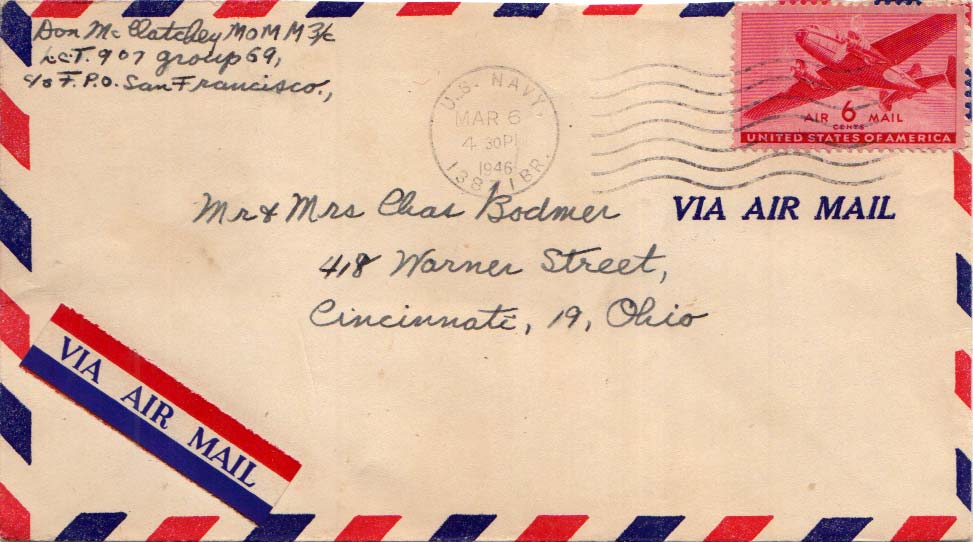 Don McClatchey MOMM 3/c
L.C.T. 907 group 69,
c/o F.P.O. San Francisco.,
U.S. NAVY
MAR 6
4 30 P
1946
1 BR.
AIR 6 MAIL
CENTS
UNITED STATES OF AMERICA
Mr & Mrs Chas Bodmer
VIA AIR MAIL
418 Warner Street,
Cincinnati, 19, Ohio
VIA AIR MAIL